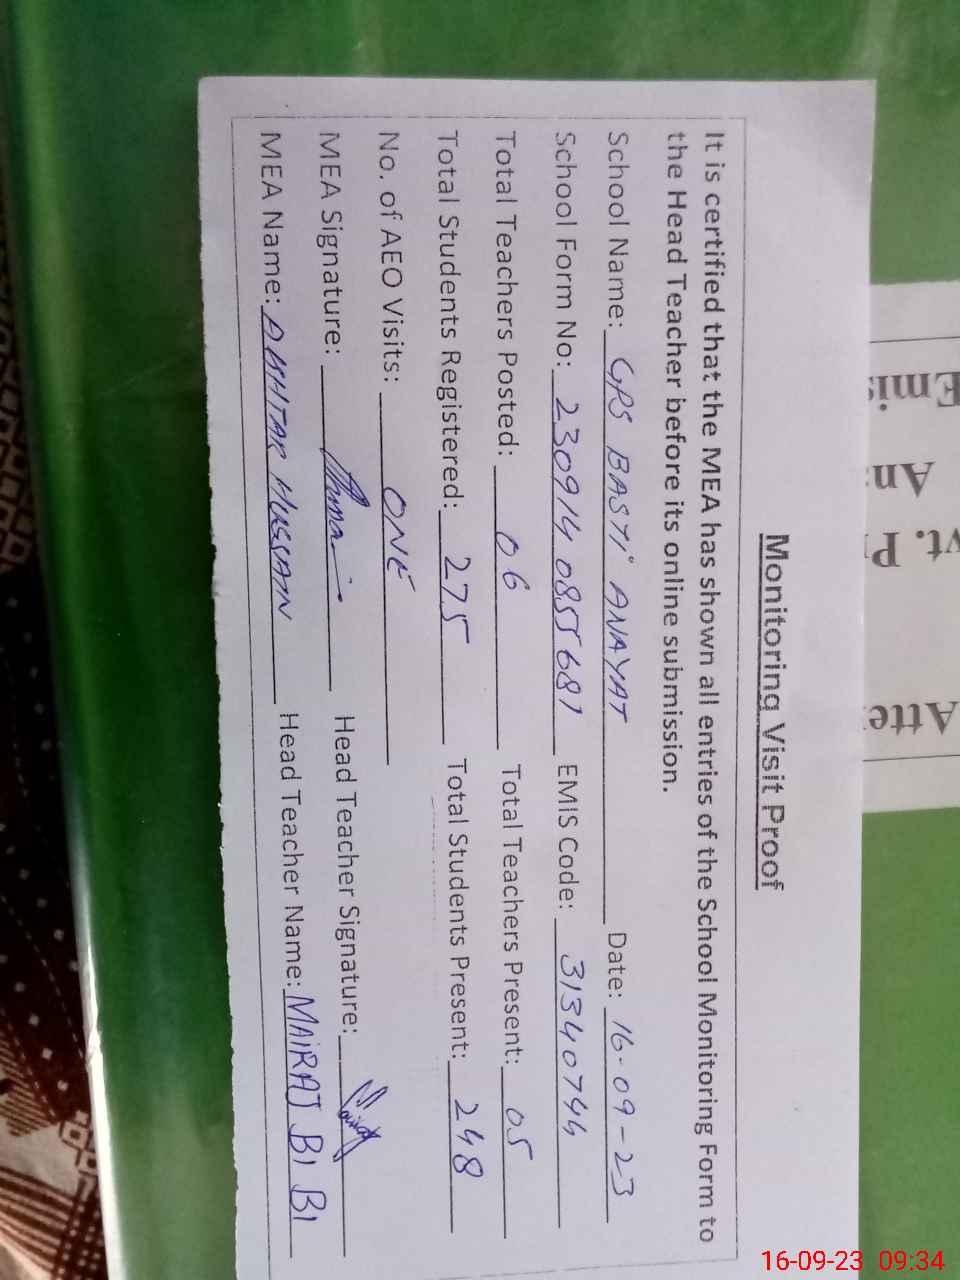 Monitoring Visit Proof
It is certified that the MEA has shown all entries of the School Monitoring Form to
the Head Teacher before its online submission.
School Name: GPS BASTI ANAYAT Date: 16-09-23
School Form No: 2309140855681 EMIS Code: 31340744
Total Teachers Posted: 06 Total Teachers Present: 05
Total Students Registered: 275 Total Students Present: 248
No. of AEO Visits: ONE
MEA Signature: Head Teacher Signature:
MEA Name: AKHTAR HUSSAIN Head Teacher Name: MAIRAJ BI BI
Emis
An
vt. P
Atte
16-09-23 09:34